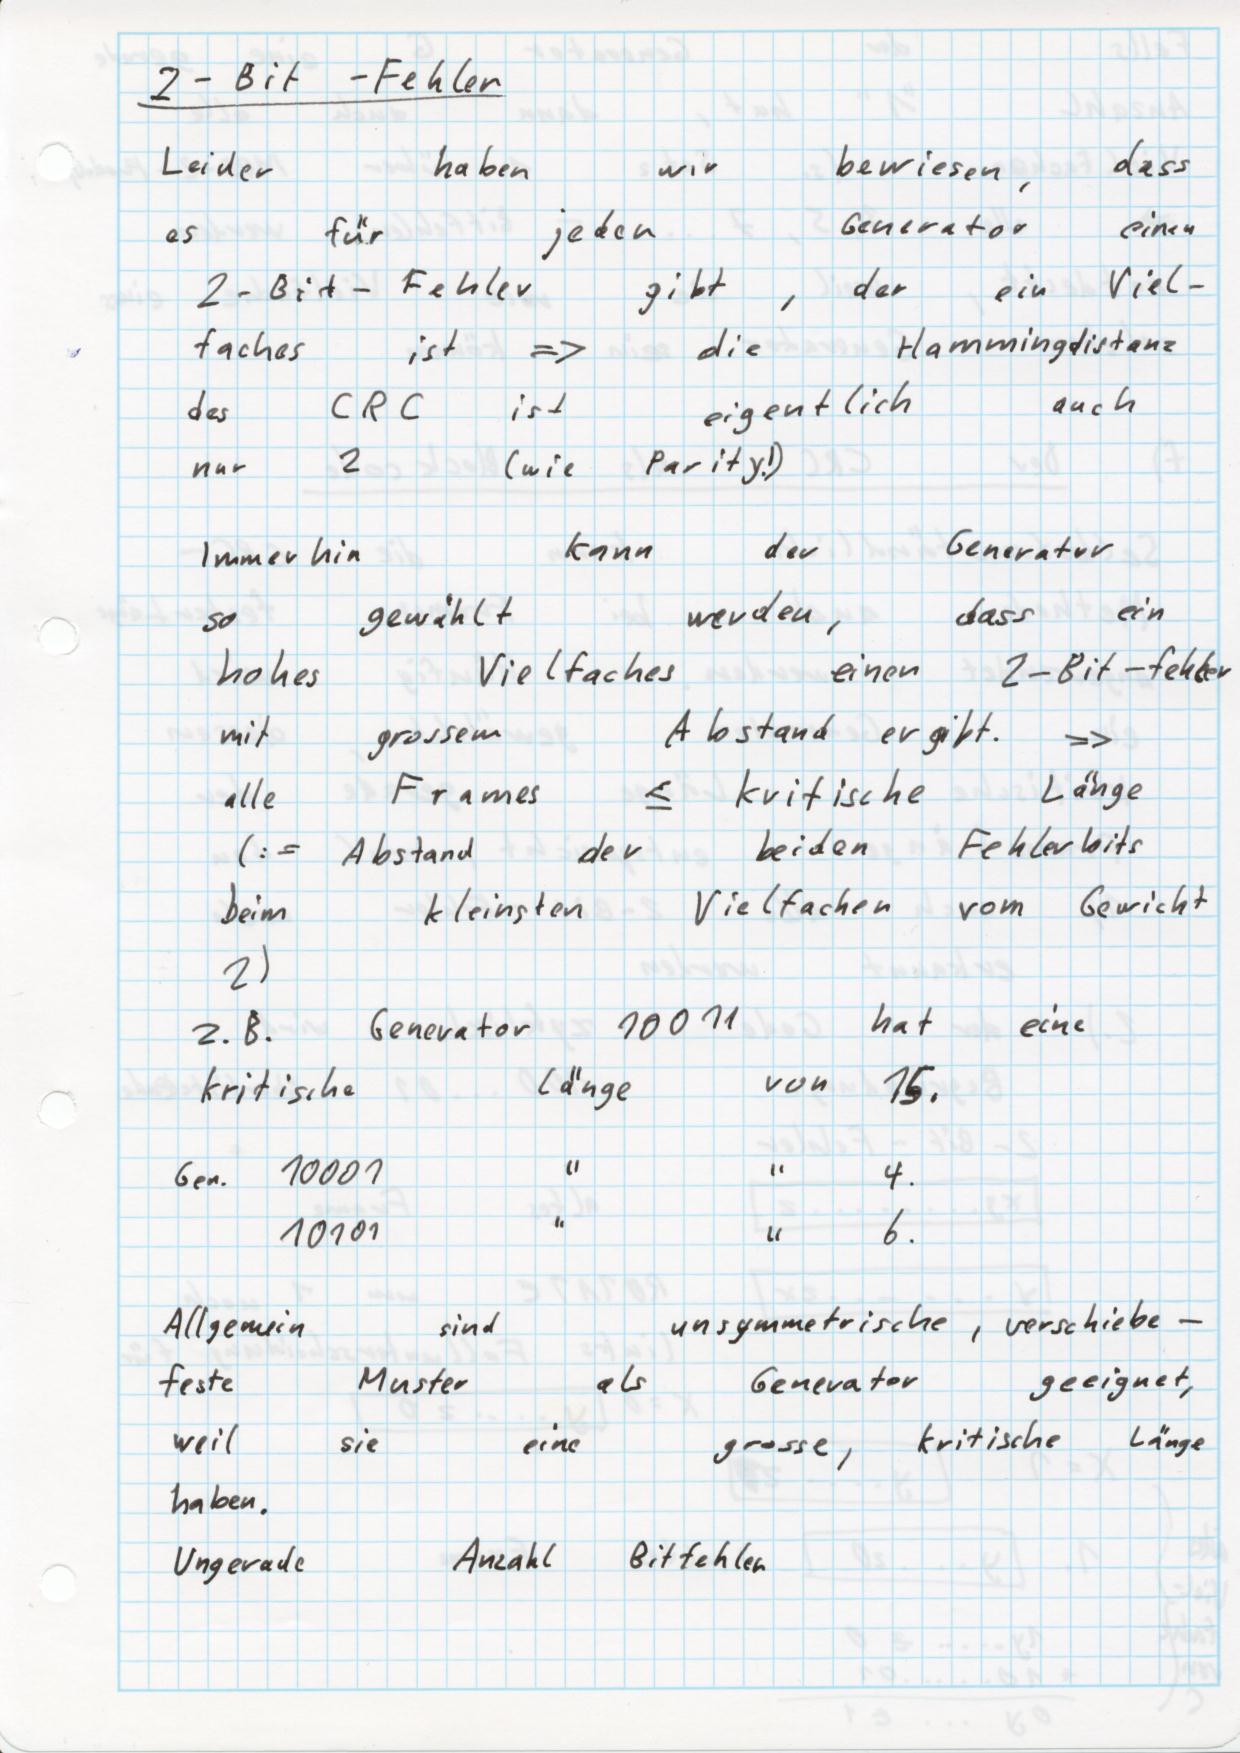 2-Bit -Fehler
Leider haben wir bewiesen, dass
es für jeden Generator einen
2-Bit-Fehler gibt, der ein Viel-
faches ist => die Hammingdistanz
des CRC ist eigentlich auch
nur 2 (wie Parity!)
Immerhin kann der Generator
so gewählt werden, dass ein
hohes Vielfaches einen 2-Bit-fehler
mit grossem Abstand ergibt. =>
alle Frames ≤ kritische Länge
(:= Abstand der beiden Fehlerbits
beim kleinsten Vielfachen vom Gewicht
2)
z.B. Generator 10011 hat eine
kritische Länge von 15.
Gen. 10001 " " 4.
10101 " " 6.
Allgemein sind unsymmetrische, verschiebe-
feste Muster als Generator geeignet,
weil sie eine grosse, kritische Länge
haben.
Ungerade Anzahl Bitfehler